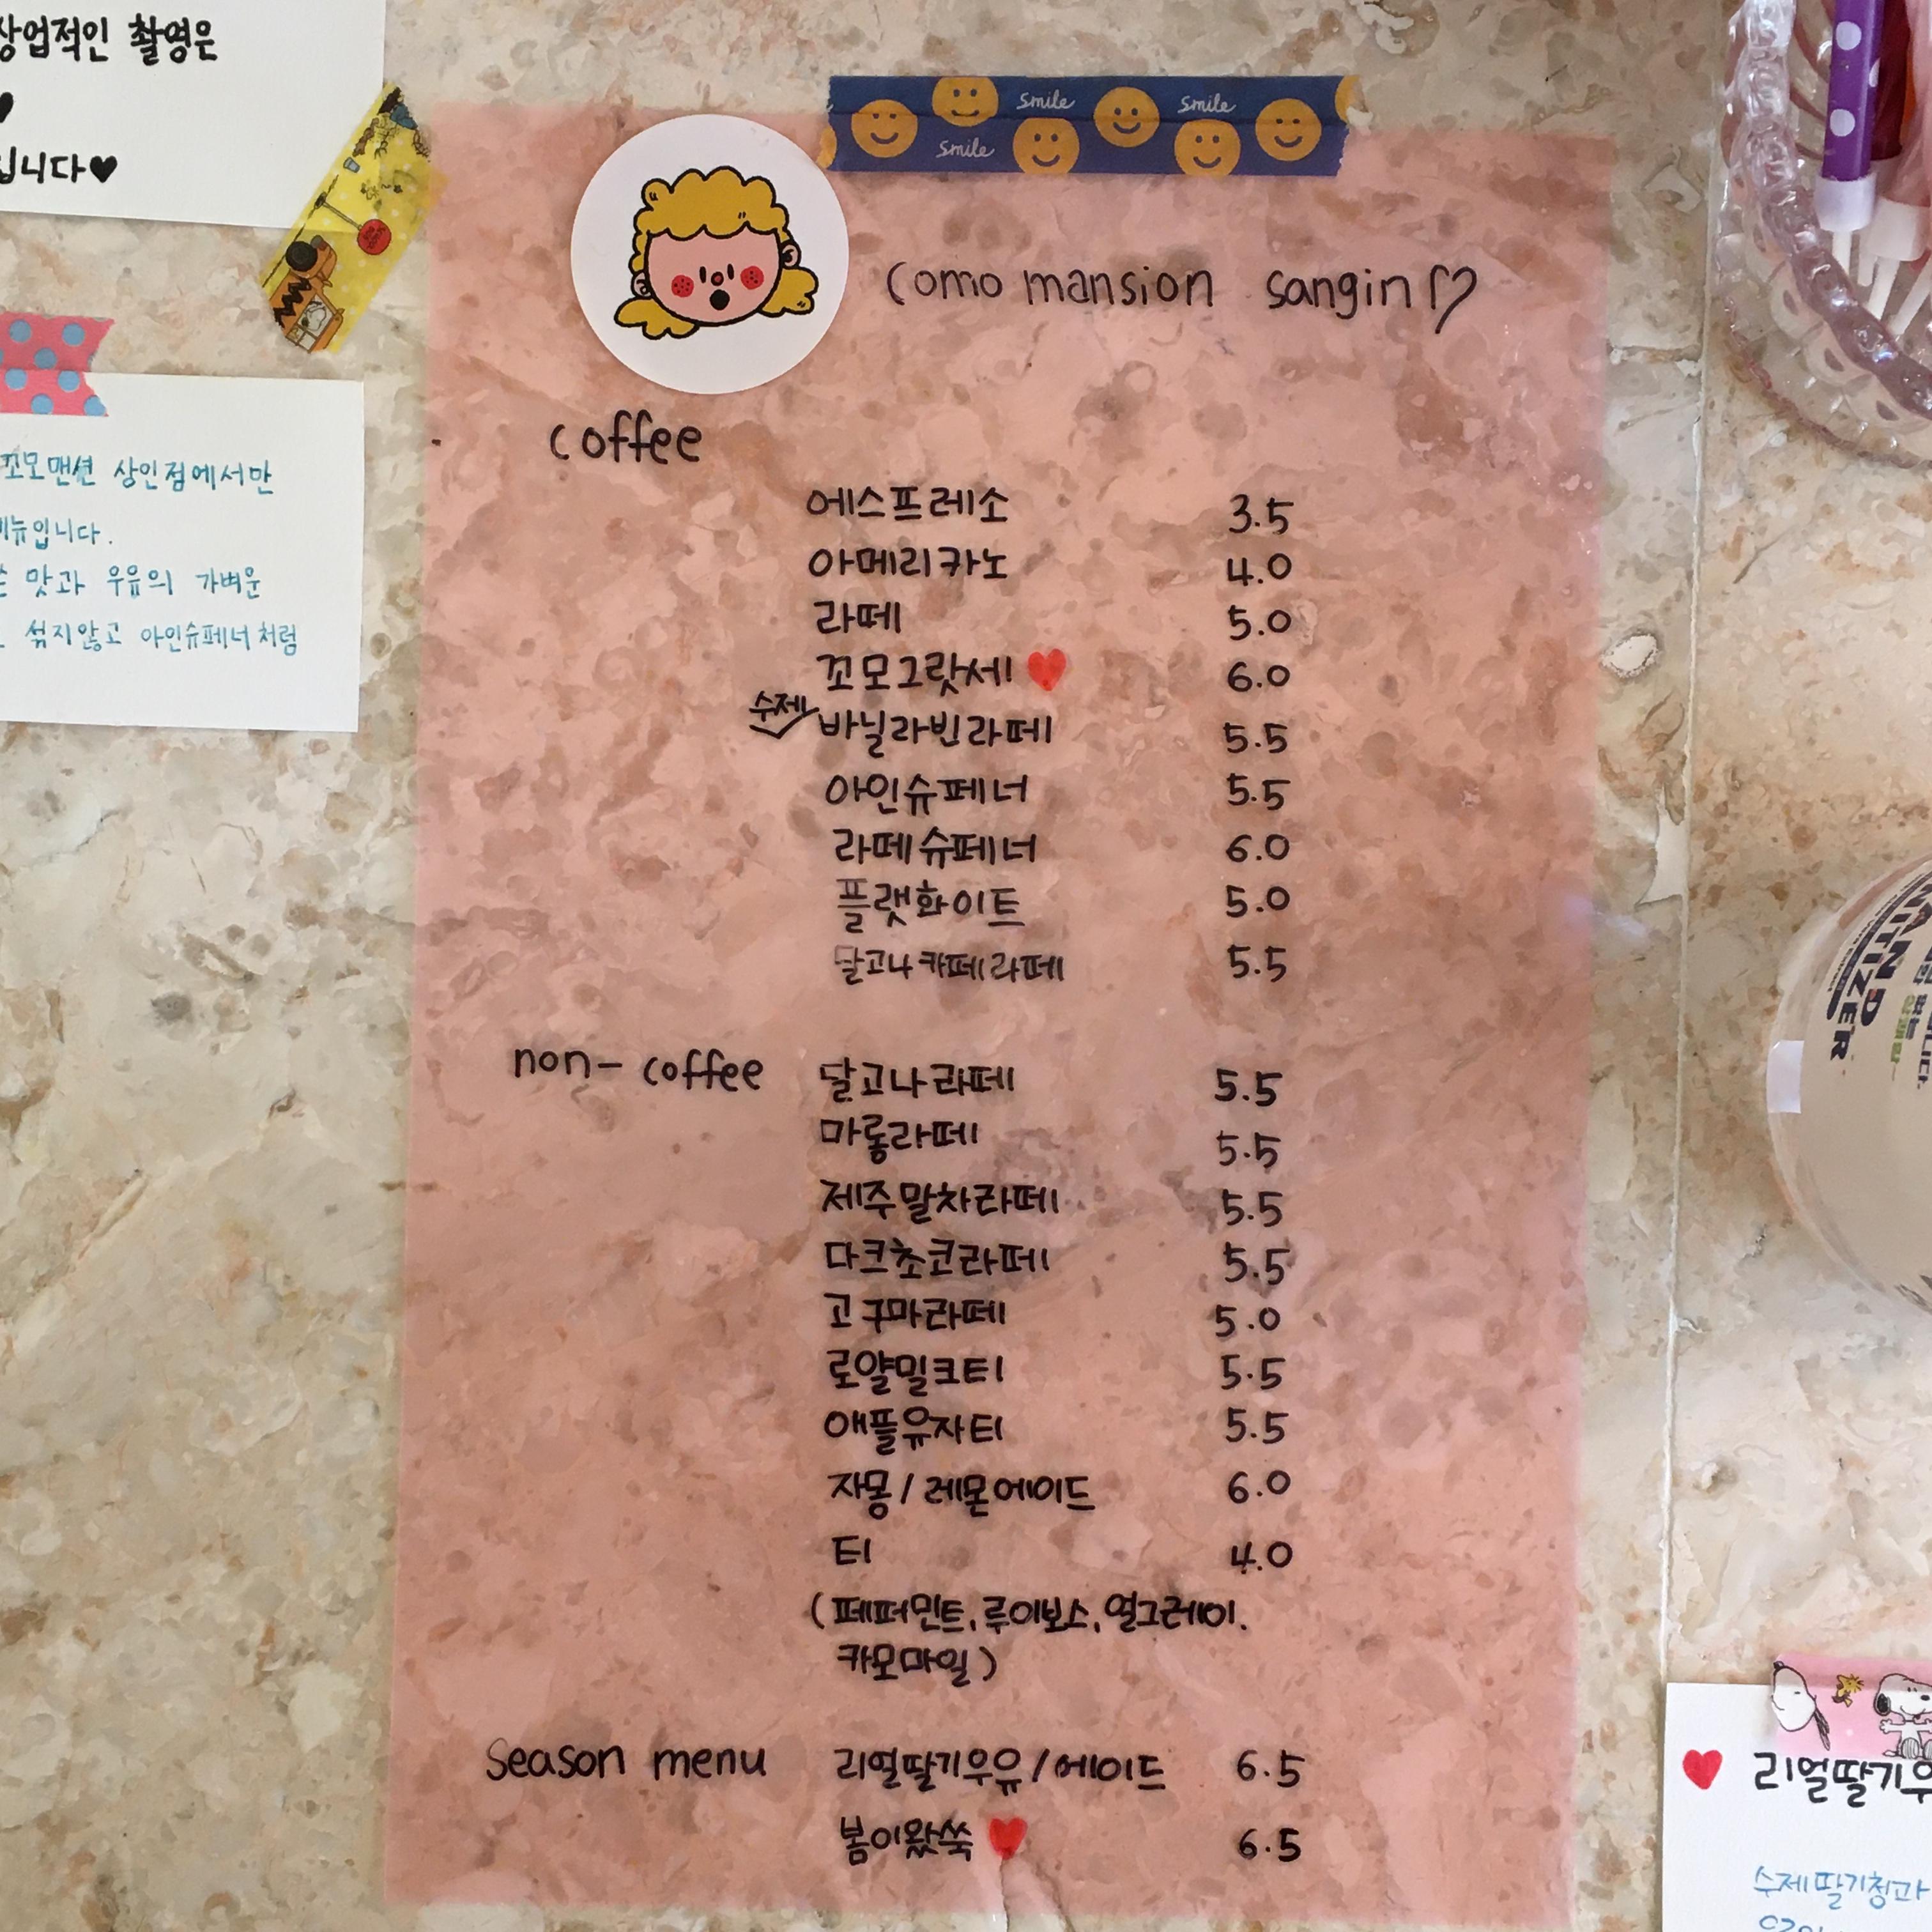 상업적인 촬영은
♥
입니다♥
smile
smile
smile
como mansion sangin♡
꼬모맨션 상인점에서만
메뉴입니다.
맛과 우유의 가벼운
섞지않고 아인슈페너처럼
coffee
에스프레소 3.5
아메리카노 4.0
라떼 5.0
꼬모그랏세 ♥ 6.0
수제 바닐라빈라떼 5.5
아인슈페너 5.5
라떼슈페너 6.0
플랫화이트 5.0
달고나카페라떼 5.5
non-coffee 달고나라떼 5.5
마롱라떼 5.5
제주말차라떼 5.5
다크초코라떼 5.5
고구마라떼 5.0
로얄밀크티 5.5
애플유자티 5.5
자몽/레몬에이드 6.0
티 4.0
(페퍼민트, 루이보스, 얼그레이.
카모마일)
season menu 리얼딸기우유/에이드 6.5
봄이왔쑥 ♥ 6.5
HAND
SANITIZER
♥ 리얼딸기우
수제딸기청과